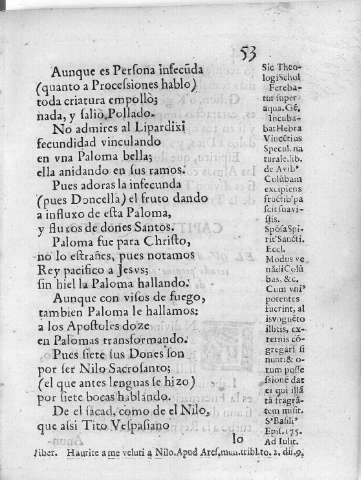 53
Aunque es Persona infecũda
(quanto a Procesiones hablo)
toda criatura empollò;
nada, y saliò, Pollado.
No admires al Lipardixi
fecundidad vinculando
en vna Paloma bella;
ella anidando en sus ramos.
Pues adoras la infecunda
(pues Doncella) el fruto dando
a influxo de esta Paloma,
y fluxos de dones Santos.
Paloma fue para Christo,
no lo estrañes, pues notamos
Rey pacifico a Jesvs;
sin hiel la Paloma hallando.
Aunque con visos de fuego,
tambien Paloma le hallamos:
a los Apostoles doze
en Palomas transformando.
Pues siete sus Dones son
por ser Nilo Sacrosanto;
(el que antes lenguas le hizo)
por siete bocas hablando.
De el sacad, como de el Nilo,
que assi Tito Vespasiano
lo
Sic Theo-
logi Schol
Fereba-
tur super
aqua. Gẽ.
Incuba-
bat Hebra
Vincẽtius
Specul. na
turale. lib.
de Avibꝰ
Colũbam
excipiens
fructibꝰ pa
scit suavi-
ssis.
Spõsa Spi-
ritꝰ Sancti.
Eccl.
Modus ve
nãdi Colũ
bas. &c.
Cum vniꝰ
potentes
fuerint, al
is vnguẽto
ilbtis, ex-
ternis cõ-
gregari si
nunt: & o-
tum posse
ssione dat
es qui illã
tã fragrã-
tem misit.
S. Basilꝰ
Epis. 175.
Ad Julit.
Jiber. Haurite a me veluti a Nilo. Apud Ares. mun. trib. to. 2. dif. 9.